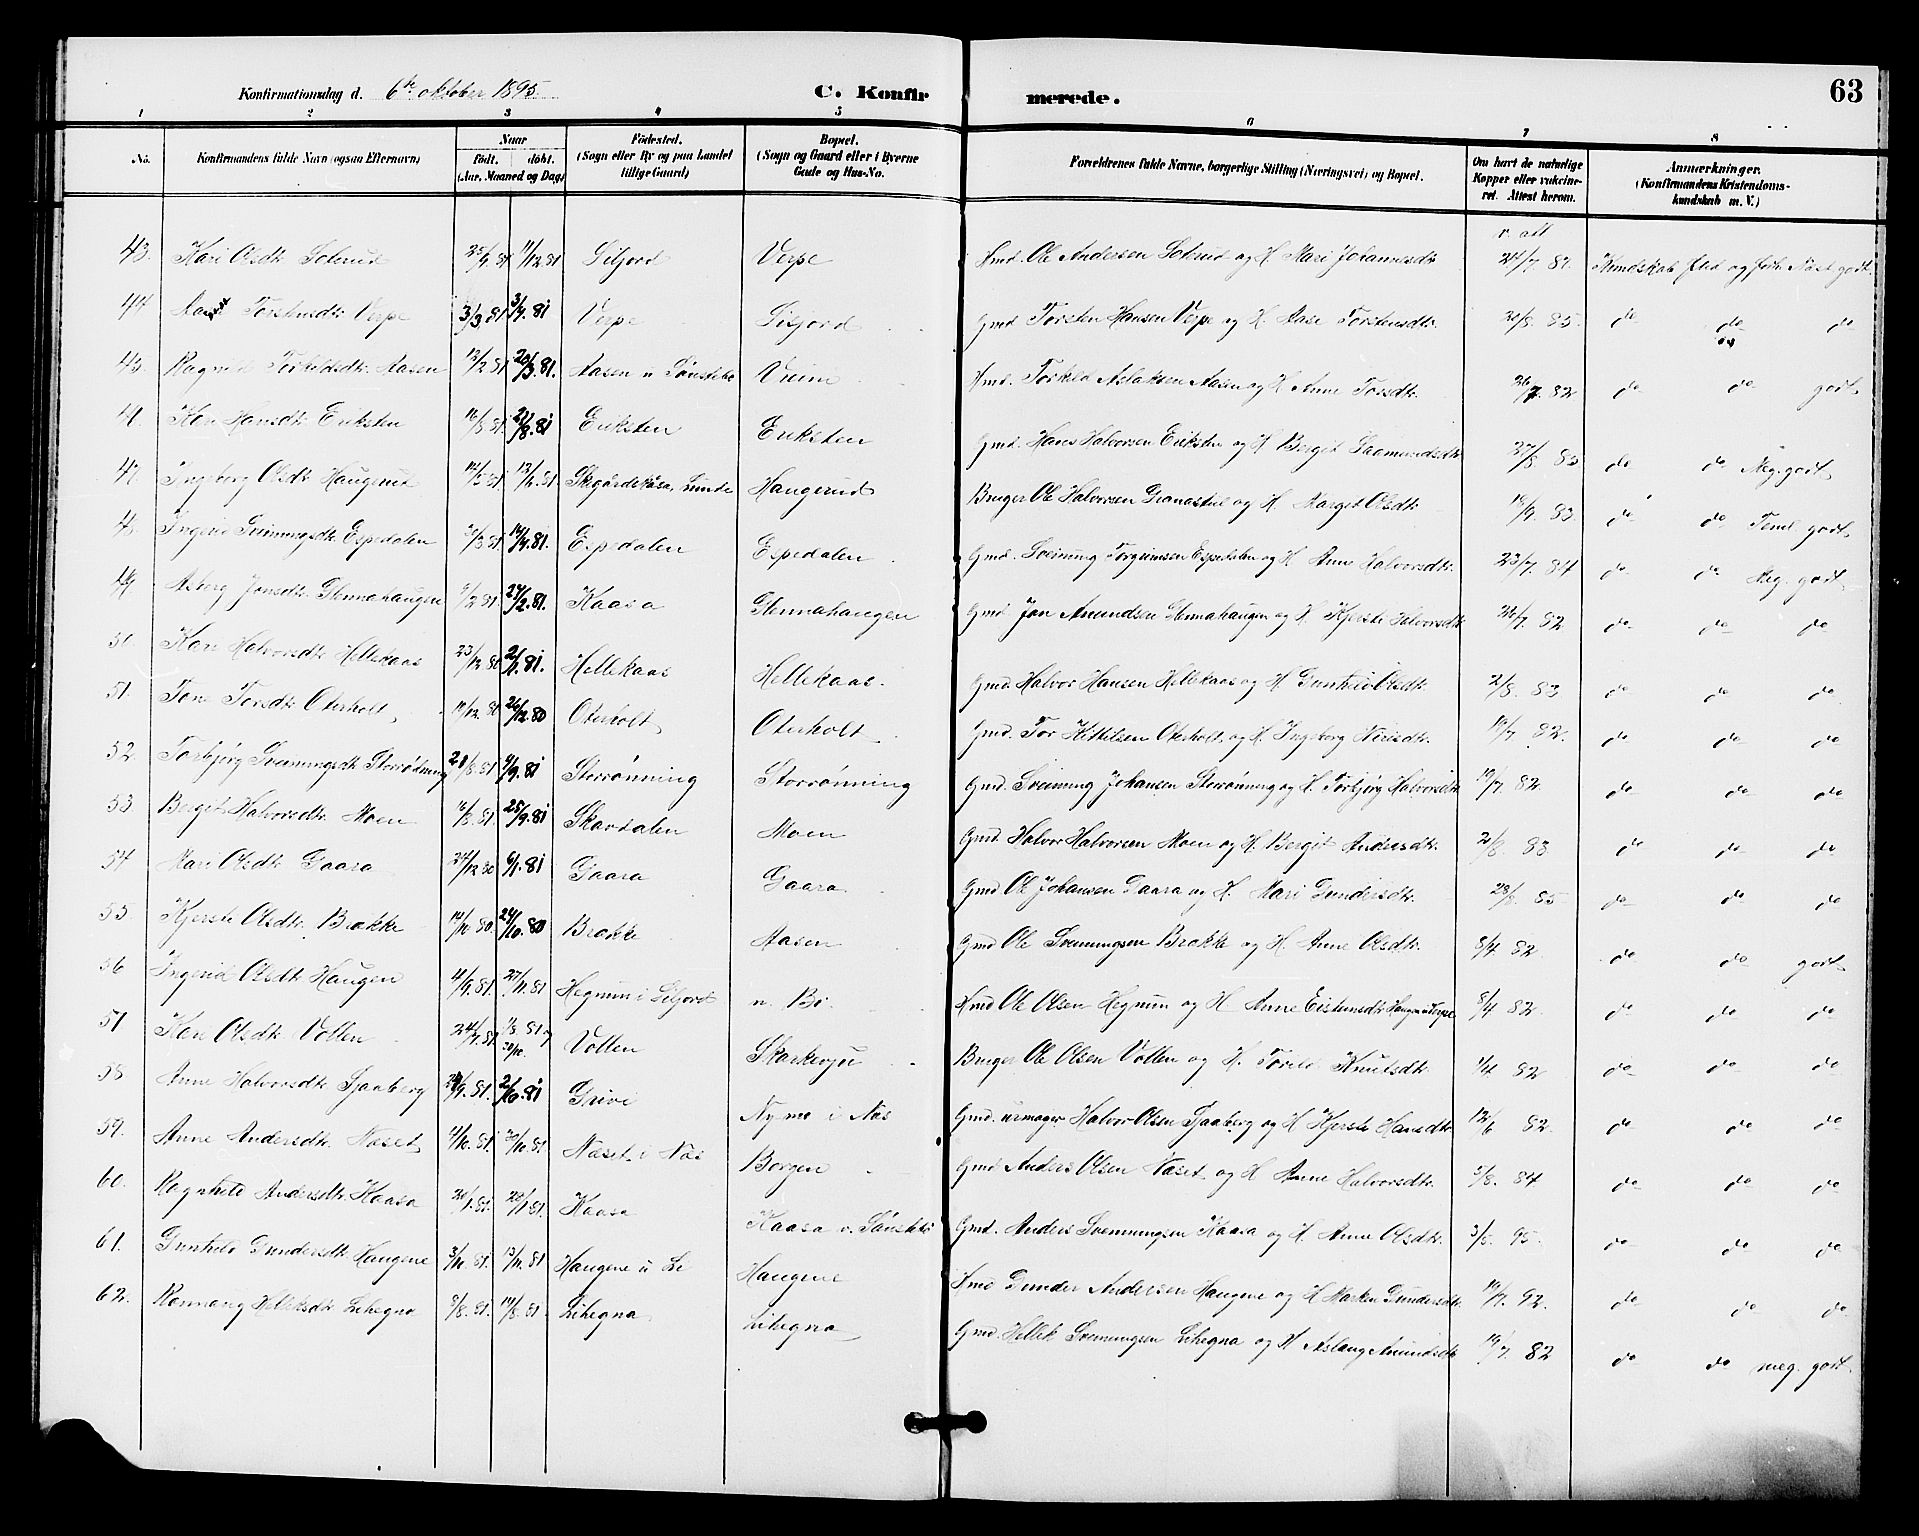 Konfirmationsdag d. 6te oktober 1895. C. Konfirmerede. 63
1 2 3 4 5 6 7 8
No. Konfirmandens fulde Navn (ogsaa Efternavn) Naar født. døbt. (Aar, Maaned og Dag) Fødested. (Sogn eller By og paa Landet tillige Gaard) Bopæl. (Sogn og Gaard eller i Byerne Gade og Hus-No. Forældrenes fulde Navne, borgerlige Stilling (Næringsvei) og Bopæl. Om havt de naturlige Kopper eller vakcineret. Attest herom. Anmærkninger. (Konfirmandens Kristendomskundskab m. V.)
v. att
43. Kari Olsdtr. 25/9 81 11/12 81 Siljord Verpe Hmd. Ole Andersen og H. Mari Johannesdtr. 24/7. 87. Kundskab Flid og Forh. Næst godt
44 Torstensdtr. Verpe 3/3 81 3/4. 81 Verpe Siljord Gmd. Torsten Hansen Verpe og H. Aase Torstensdtr. 20/8. 85. do do do
45. Torkildsdtr. Aasen 12/2 81 20/3. 81. Aasen u Sønstebø Hmd. Torkild Aslaksen Aasen og H. Anne Torsdtr. 26/7. 82 do do godt
Kari Hansdtr. Eriksten 16/8 81. 21/8. 81 Eriksten Eriksten Gmd. Hans Halvorsen Eriksten og H. Bergit 27/8 83 do do Meg. godt
47. Ingeborg Olsdtr. Haugerud 12/5 81. 13/6. 81 Lunde Haugerud Bruger Ole Halvorsen og H. Marget Olsdtr. 19/9. 83. do do Teml. godt
Ingerid Sveiningsdtr. Espedalen 20/3 81. 14/4. 81. Espedalen Espedalen Gmd. Sveining Torgrimsen Espedalen og H. Anne Halvorsdtr. 23/7. 84 do do Meg. godt
49. Asberg Jonsdtr. Stennahaugen 9/2 81. 27/2. 81. Kaasa Stennahaugen Gmd. Jon Amundsen Stennahaugen og H. Kjersti Halvorsdtr. 26/7. 82 do do do
50. Kari Halvorsdtr. Hellekaas 23/12. 80 2/1. 81. Hellekaas Hellekaas Gmd. Halvor Hansen Hellekaas og H. Gunhild Olsdtr. 2/8. 83 do do do
51. Tone Torsdtr. Oterholt 19/12. 80 26/12. 80 Oterholt Oterholt Gmd. Tor Kittilsen Oterholt og H. Ingeborg 19/7 82. do do do
52. Torbjørg Sveiningsdtr. Storrønning 21/8. 81 4/9. 81 Storrønning Storrønning Gmd. Sveining Johansen Storrønning og H. Torbjørg Halvorsdtr. 19/7. 82. do do do
53 Bergit Halvorsdtr. Moen 16/8. 81. 25/9. 81 Skardalen Moen Gmd. Halvor Halvorsen Moen og H. Bergit Andersdtr. 21/8. 83 do do do
54 Mari Olsdtr. Gaara 24/12 80 6/1. 81 Gaara Gaara Gmd Ole Johansen Gaara og H. Mari Gundersdtr. 28/8. 85 do do do
55. Kjersti Olsdtr. Brække 14/10. 80. 24/10. 80 Brække Aasen Gmd Ole Sveiningsen Brække og H. Anne Olsdtr. 8/4. 82. do do godt
56 Ingerid Olsdtr. Haugen 4/9. 81. 27/11. 81 Hegnum i Siljord n. Bø Hmd Ole Olsen Hegnum og H Anne Eistensdtr. Haugen u Verpe 8/4 82. do do do
57 Kari Olsdtr. Vollen 24/7. 81. 7/8. 81 og 30/10. Vollen Bruger Ole Olsen Vollen og H. Knutsdtr. 4/4 82 do do do
58. Anne Halvorsdtr. Sjaaberg 24/9. 81. 2/10. 81 Grivi Nymo i Næs Gmd. urmager Halvor Olsen Sjaaberg og H Kjersti Hansdtr. 12/6 82. do do do
59. Anne Andersdtr. Næset 11/10. 81. 30/10. 81 Næset i Næs Borgen Gmd Anders Olsen Næset og H Anne Halvorsdtr. 5/8. 84 do do do
60. Ragnhild Andersdtr. Kaasa 20/1. 81. 23/1. 81. Kaasa Kaasa v. Sønstebø Gmd. Anders Sveiningsen Kaasa og H. Anne Olsdtr. 3/5. 95. do do do
61. Gunhild Gundersdtr. Haugene 3/10. 81. 13/11. 81 Haugene u Li Haugene Hmd Gunder Andersen Haugene og H Maren Gundersdtr. 19/7. 92. do do do
62. Rønnaug Helleksdtr. Lihegna 3/8. 81. 14/8. 81 Lihegna Lihegna Gmd. Hellek Sveiningsen Lihegna og H Aslaug Amundsdtr. 19/7. 82 do do meg. godt